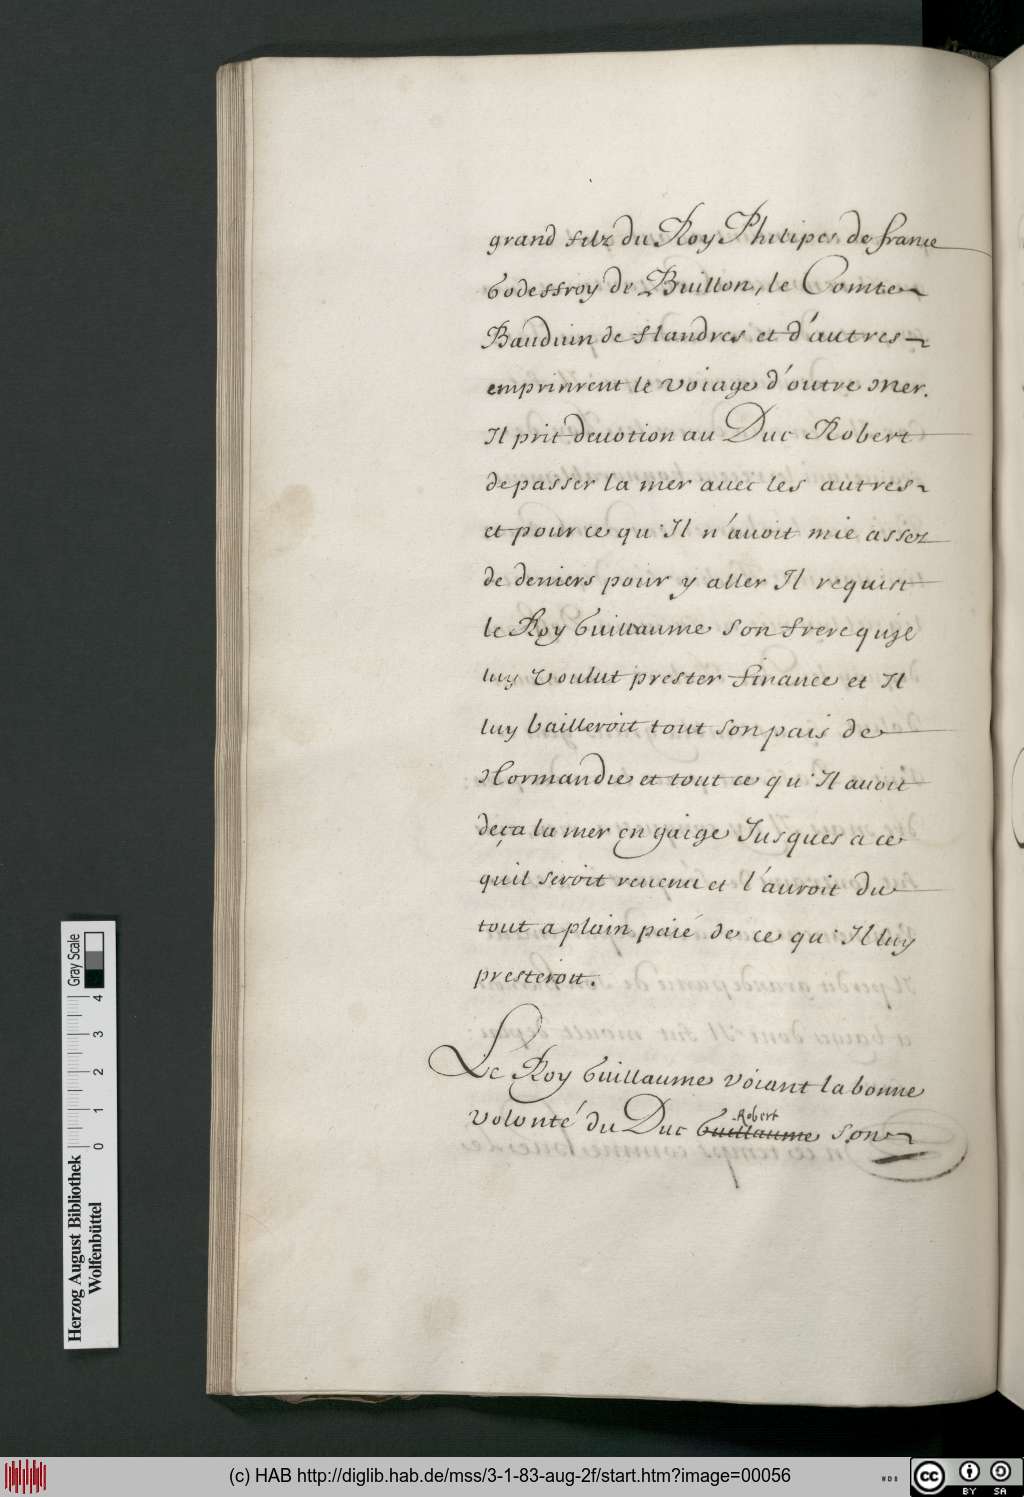 grand filz du Roy Philipes de france
Godeffroy de Buillon, le Comte
Bauduin de flandres et d'autres
emprinrent le voiage d'outre mer.
Il prit devotion au Duc Robert
de passer la mer auec les autres
et pour ce qu'Il n'auoit mie assez
de deniers pour y aller Il requist
le Roy Guillaume son frere quil
luy voulut prester finance et Il
luy bailleroit tout son païs de
Normandie et tout ce qu'Il auoit
deça la mer en gaige Jusques a ce
quil seroit reuenu et l'auroit du
tout a plain paié de ce qu'Il luy
presteroit.
Le Roy Guillaume voiant la bonne
Robert
volonté du Duc Guillaume son
Gray Scale
0 1 2 3 4
Herzog August Bibliothek
Wolfenbüttel
(c) HAB http://diglib.hab.de/mss/3-1-83-aug-2f/start.htm?image=00056
WDB
cc BY SA